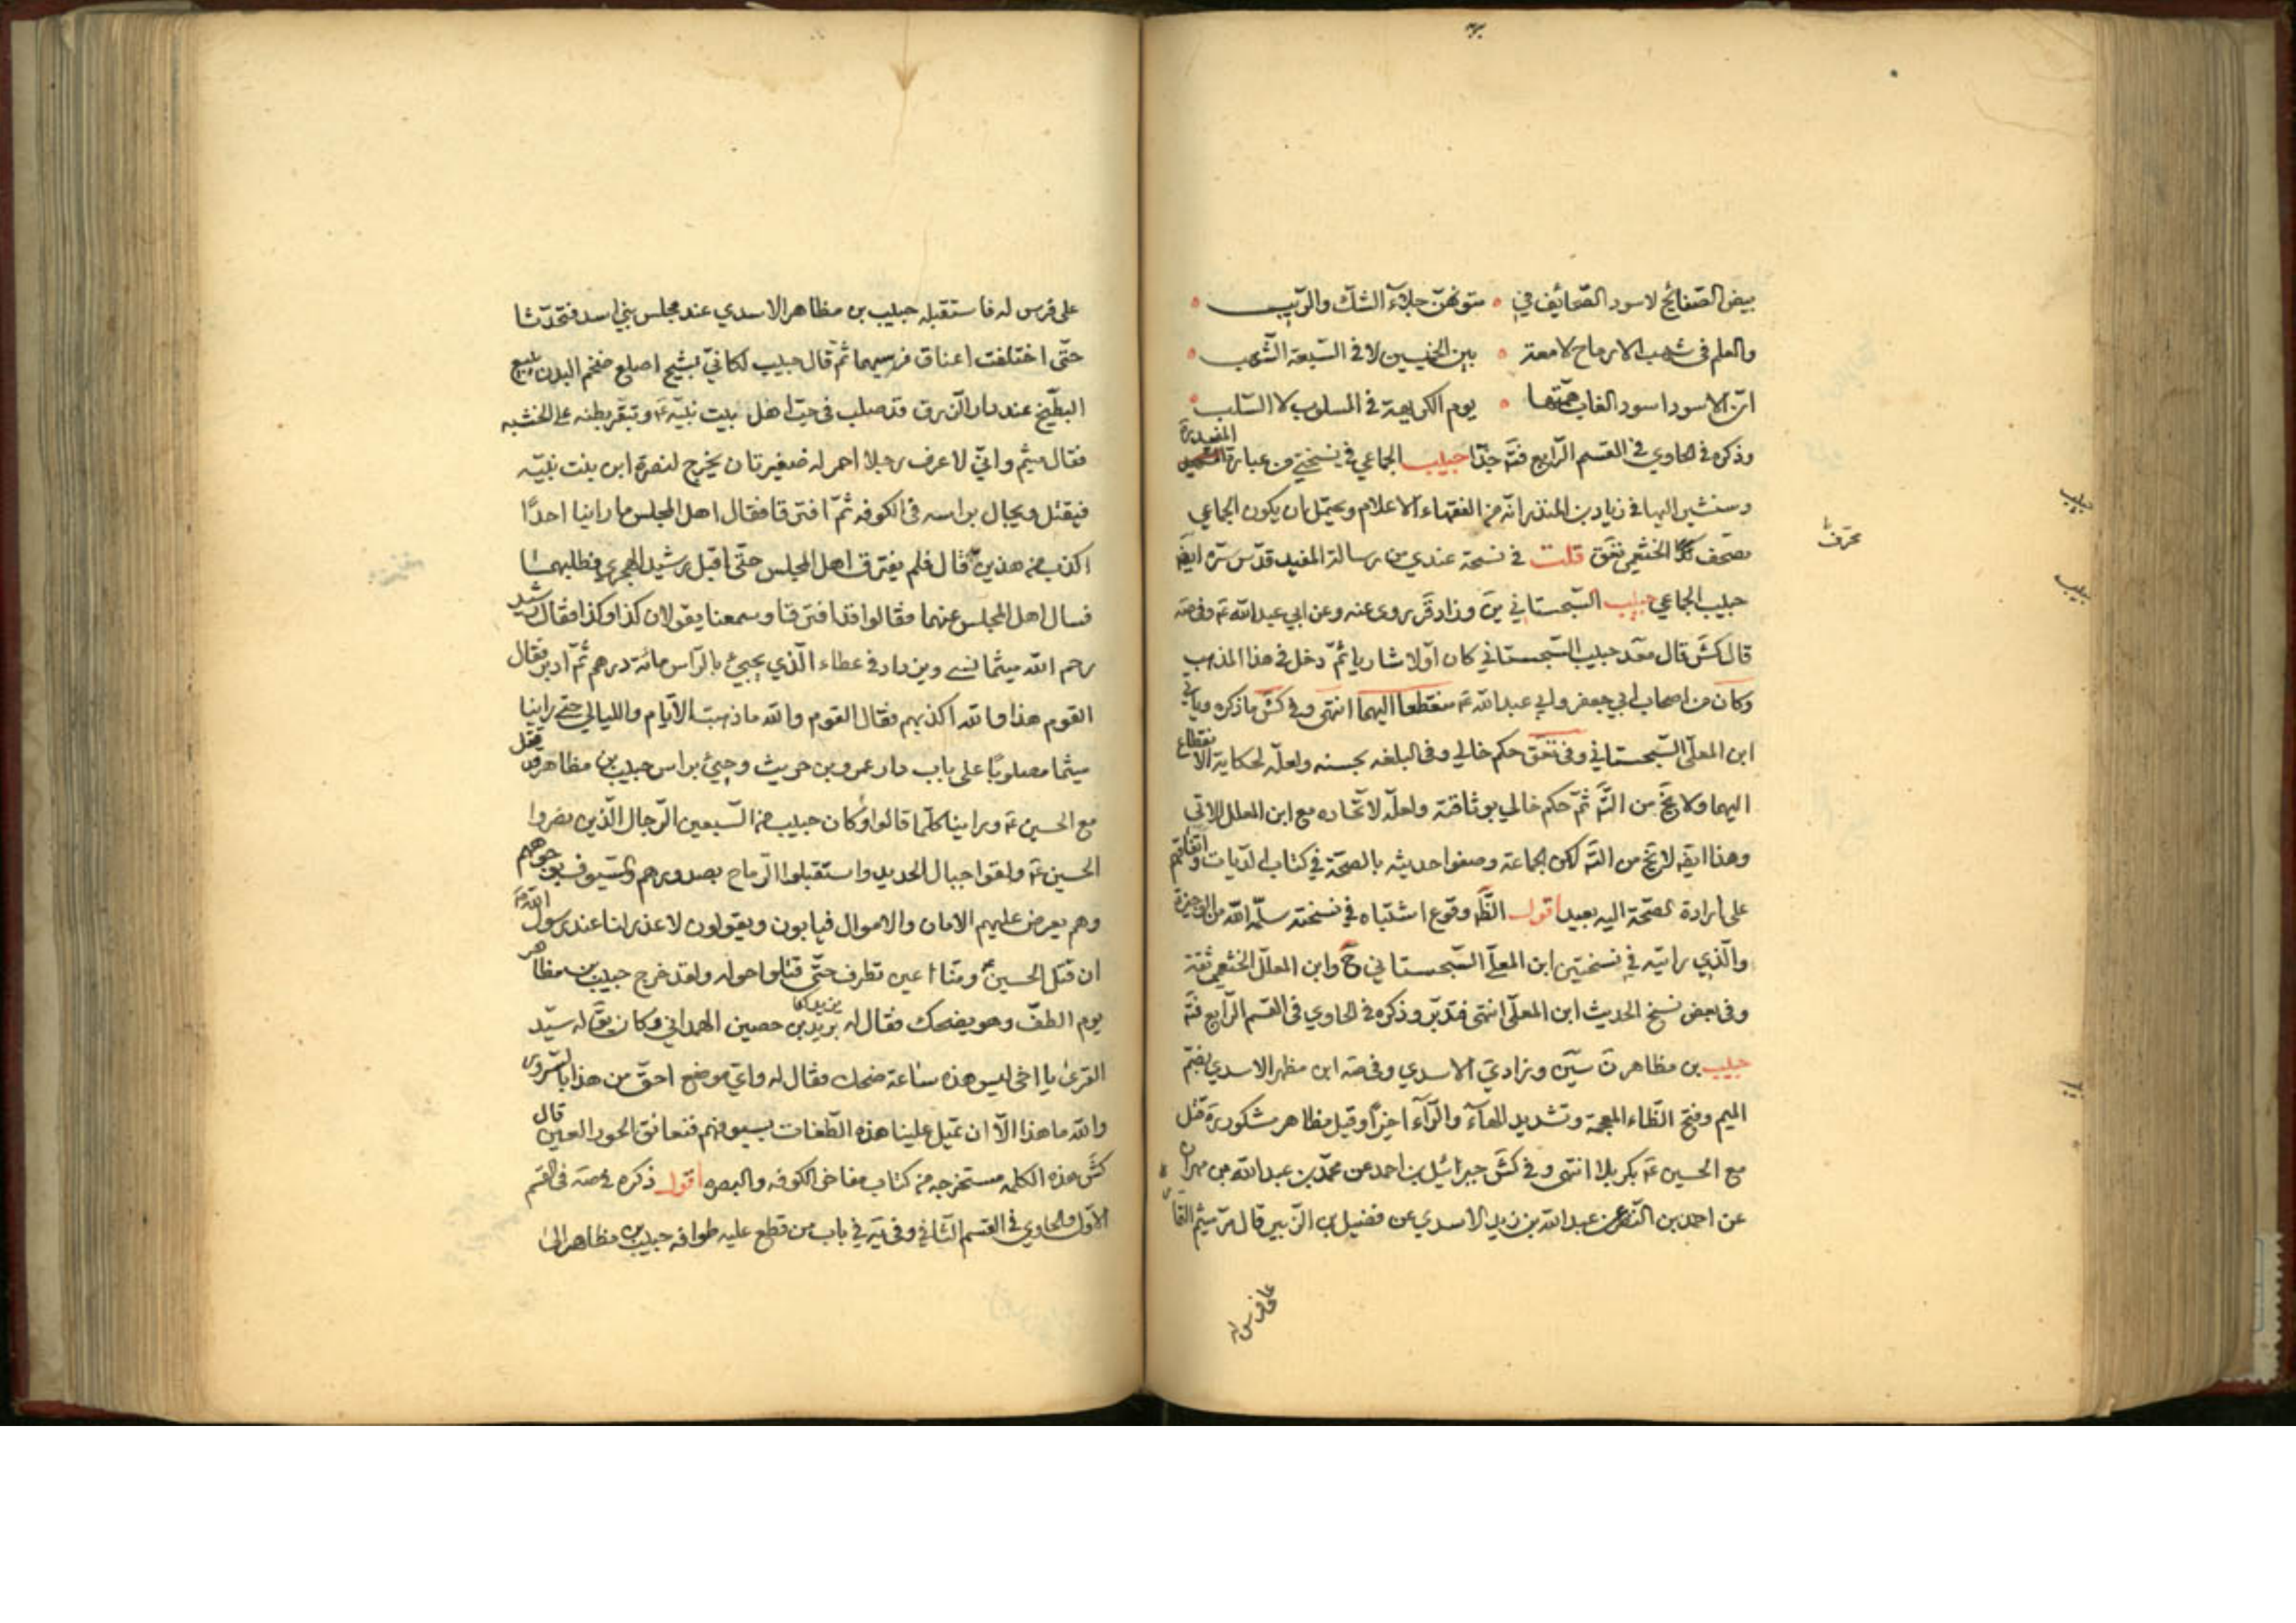 بيض الصفائح لا سود الصحائف في متونهنّ جلاء الشك والريب
والعلم في شهب الارماح لامعة بين الخميسين لا في السبعة الشهب
انّ الاسود اسود الغاب همّتها يوم الكريهة في المسلوب لا السلب
وذكره في الحاوي في القسم الرابع فتَه جدّا حبيب الجماعي في نسختي من عبارة المفيد ره
وسنشير اليها في زياد بن المنذر انّه من الفقهاء الاعلام ويحتمل ان يكون الجماعي
مصحف الخثعمي نعَق قلت في نسخة عندي من رسالة المفيد قدّس سرّه ايضَ
حبيب الجماعي حبيب السجستاني ين وزاد قَر روى عنه وعن ابي عبد الله عَه وفي صَه
قال كش قال معَد حبيب السجستاني كان اولا شاريا ثمّ دخل في هذا المذهب
وكان من اصحاب ابي جعفر وابي عبد الله عَه منقطعا اليهما انتهى وفي كش ما ذكره وياتي
ابن المعلّى السّجستاني وفي تعَق حكم خالي وفي البلغه بحسنه ولعلّه لحكاية الانقطاع
اليهما ولا يخ من التَّه ثمّ حكم خالي بوثاقته ولعلّه لاتّحاده مع ابن المعلل الاتي
وهذا ايضَ لا يخ من التَه لكن الجماعة وصفوا حديثه بالصحّة في كتاب الديات واتفاقهم
على ارادة الصّحة اليه بعيد اقول الظَّه وقوع اشتباه في نسخته سلّمه الله من الوجيزة
والّذي رايته في نسختين ابن المعلّى السّجستاني ح وابن المعلّل الخثعمي ثقة
وفي بعض نسخ الحديث ابن المعلّى انتهى فتدبّر وذكره في الحاوي في القسم الرابع فتَه
حبيب بن مظاهر نَ سين وزاد ي الاسدي وفي صَه ابن مظهر الاسدي بضم
الميم وفتح الظّاء المعجمة وتشديد الهاء والرّاء اخيرًا وقيل مظاهر مشكور ره قتل
مع الحسين عَه بكربلا انتهى وفي كش جبرائيل بن احمد عن محمّد بن عبد الله بن مهران
عن احمد بن النضر عن عبد الله بن زيد الاسدي عن فضيل بن الزّبير قال مرّ ميثم التمار
على فرس له
محرف
حبيب
حبيب
على فرس له فاستقبله حبيب بن مظاهر الاسدي عند مجلس بني اسد فتحدّثا
حتّى اختلفت اعناق فرسيهما ثمّ قال حبيب لكانّي بشيخ اصلع ضخم البدن يبيع
البطّيخ عند دار الرّزق قد صلب في حبّ اهل بيت نبيّه عَه وتبقر بطنه على الخشبه
فقال ميثم وانّي لاعرف رجلا احمر له ضفيرتان يخرج لنصرة ابن بنت نبيّه
فيقتل ويجال براسه في الكوفه ثمّ افترقا فقال اهل المجلس ما راينا احدًا
اكذب من هذين قال فلم يفترق اهل المجلس حتّى اقبل رشيد الهجري فطلبهما
فسال اهل المجلس عنهما فقالوا قد افترقا وسمعنا يقولان كذا وكذا فقال رشيد
رحم الله ميثما نسي ويزداد في عطاء الّذي يجيئ بالرّاس مائة درهم ثمّ ادبر فقال
القوم هذا والله اكذبهم فقال القوم والله ما ذهبت الايّام والليالي حتّى راينا
ميثما مصلوبًا على باب دار عمرو بن حريث وجيئ براس حبيب بن مظاهر قد قتل
مع الحسين عَه وراينا كلّما قالوا وكان حبيب من السّبعين الرّجال الّذين نصروا
الحسين عَه ولقوا جبال الحديد واستقبلوا الرّماح بصدورهم والسّيوف بوجوههم
وهم يعرض عليهم الامان والاموال فيابون ويقولون لا عذر لنا عند رسول الله ص
ان قتل الحسين ومنّا عين تطرف حتّى قتلوا حوله ولقد خرج حبيب بن مظاهر
يوم الطفّ وهو يضحك فقال له برير بن حصين الهمداني وكان يقَ له سيّد
القرى يا اخي ليس هذه ساعة ضحك فقال له وايّ موضع احقّ من هذا بالسّرور
والله ما هذا الّا ان تميل علينا هذه الطّغات بسيوفهم فنعانق الحور العين قال
كش هذه الكلمه مستخرجه من كتاب مفاخر الكوفه والبصره اقول ذكره في صَه في القسم
الاوّل والحاوي في القسم الثاني وفي يَه في باب من قطع عليه طوافه حبيب بن مظاهر الى